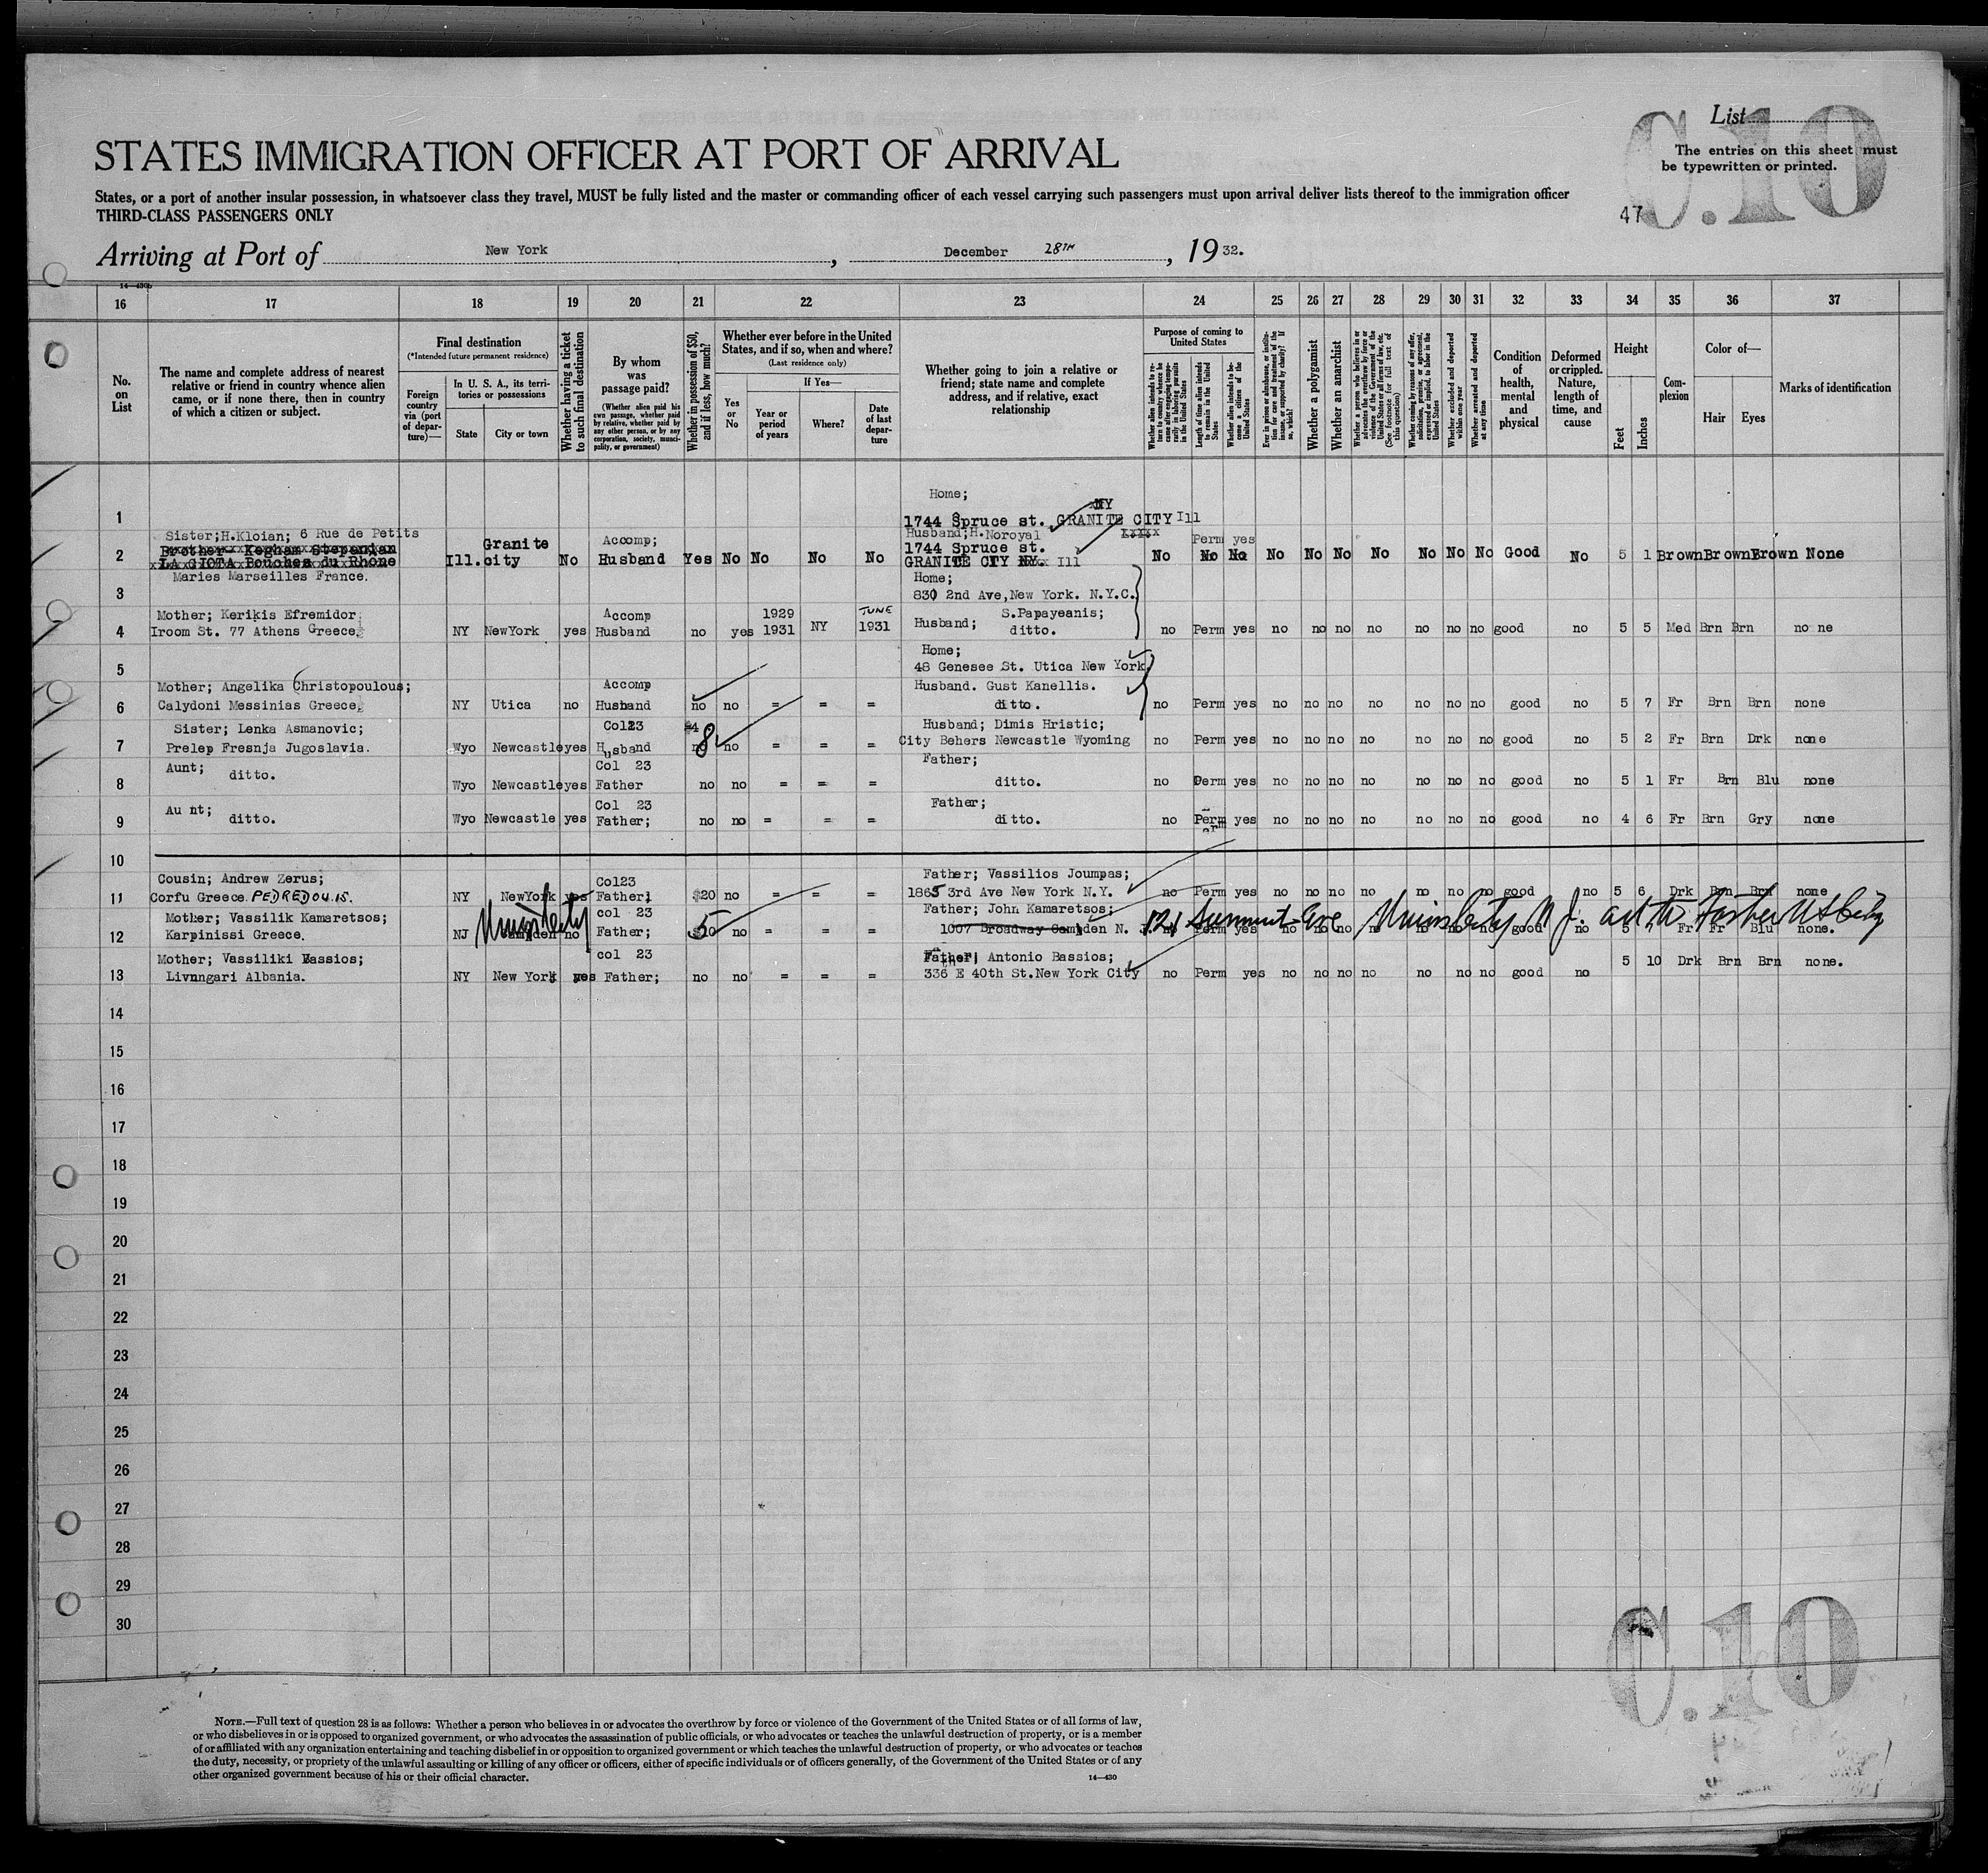 List
C.10
The entries on this sheet must
be typewritten or printed.
STATES IMMIGRATION OFFICER AT PORT OF ARRIVAL
States, or a port of another insular possession, in whatsoever class they travel, MUST be fully listed and the master or commanding officer of each vessel carrying such passengers must upon arrival deliver lists thereof to the immigration officer
THIRD-CLASS PASSENGERS ONLY
47
Arriving at Port of New York, December 28TH, 1932.
14—430b
16 17 18 19 20 21 22 23 24 25 26 27 28 29 30 31 32 33 34 35 36 37
No. on List
The name and complete address of nearest relative or friend in country whence alien came, or if none there, then in country of which a citizen or subject.
Final destination
(*Intended future permanent residence)
Foreign country via (port of departure)—
In U. S. A., its territories or possessions
State
City or town
Whether having a ticket to such final destination
By whom was passage paid?
(Whether alien paid his own passage, whether paid by relative, whether paid by any other person, or by any corporation, society, municipality, or government)
Whether in possession of $50, and if less, how much?
Whether ever before in the United States, and if so, when and where?
(Last residence only)
Yes or No
If Yes—
Year or period of years
Where?
Date of last departure
Whether going to join a relative or friend; state name and complete address, and if relative, exact relationship
Purpose of coming to United States
Whether alien intends to return to country whence he came after engaging temporarily in laboring pursuits in the United States
Length of time alien intends to remain in the United States
Whether alien intends to become a citizen of the United States
Ever in prison or almshouse, or institution for care and treatment of the insane, or supported by charity? If so, which?
Whether a polygamist
Whether an anarchist
Whether a person who believes in or advocates the overthrow by force or violence of the Government of the United States or all forms of law, etc. (See footnote for full text of this question)
Whether coming by reasons of any offer, solicitation, promise, or agreement, expressed or implied, to labor in the United States
Whether excluded and deported within one year
Whether arrested and deported at any time
Condition of health, mental and physical
Deformed or crippled. Nature, length of time, and cause
Height
Feet
Inches
Complexion
Color of—
Hair
Eyes
Marks of identification
Home;
NY
1 1744 Spruce st. GRANITE CITY Ill
Sister;H.Kloian; 6 Rue de Petits Husband;H.Noroyal xxxxx
2 Brother Kegham Stepanian Granite Accomp; 1744 Spruce st. Perm yes
LA CIOTA Bouches du Rhone Ill. city No Husband Yes No No No No GRANITE CTY NY. Ill No No No No No No No No No No Good No 5 1 Brown Brown Brown None
Maries Marseilles France. Home;
3 830 2nd Ave,New York. N.Y.C.
Mother; Kerikis Efremidor Accomp 1929 JUNE S.Papayeanis;
4 Iroom St. 77 Athens Greece. NY NewYork yes Husband no yes 1931 NY 1931 Husband; ditto. no Perm yes no no no no no no no good no 5 5 Med Brn Brn none
Home;
5 48 Genesee St. Utica New York.
Mother; Angelika Christopoulous; Accomp Husband. Gust Kanellis.
6 Calydoni Messinias Greece. NY Utica no Husband no no = = = ditto. no Perm yes no no no no no no no good no 5 7 Fr Brn Brn none
Sister; Lenka Asmanovic; Col23 $4 8 Husband; Dimis Hristic;
7 Prelep Fresnja Jugoslavia. Wyo Newcastle yes Husband no no = = = City Behers Newcastle Wyoming no Perm yes no no no no no no no good no 5 2 Fr Brn Drk none
Aunt; Col 23 Father;
8 ditto. Wyo Newcastle yes Father no no = = = ditto. no Perm yes no no no no no no no good no 5 1 Fr Brn Blu none
Aunt; Col 23 Father;
9 ditto. Wyo Newcastle yes Father; no no = = = ditto. no Perm yes no no no no no no no good no 4 6 Fr Brn Gry none
10
Cousin; Andrew Zerus; Col23 Father; Vassilios Joumpas;
11 Corfu Greece. PEDREDOU.15. NY NewYork yes Father; $20 no = = = 1865 3rd Ave New York N.Y. no Perm yes no no no no no no no good no 5 6 Drk Brn Brn none
Mother; Vassilik Kamaretsos; Union City col 23 5 Father; John Kamaretsos; 121 Summit Ave Union City N J.
12 Karpinissi Greece. NJ Camden no Father; $10 no = = = 1007 Broadway Camden N. Perm yes no no no no no no no good no 5 Fr Fr Blu none.
Mother; Vassiliki Bassios; col 23 Father; Antonio Bassios;
13 Livnngari Albania. NY New York yes Father; no no = = = 336 E 40th St.New York City no Perm yes no no no no no no no good no 5 10 Drk Brn Brn none.
14
15
16
17
18
19
20
21
22
23
24
25
26
27
28
29
30
C.10
NOTE.—Full text of question 28 is as follows: Whether a person who believes in or advocates the overthrow by force or violence of the Government of the United States or of all forms of law,
or who disbelieves in or is opposed to organized government, or who advocates the assassination of public officials, or who advocates or teaches the unlawful destruction of property, or is a member
of or affiliated with any organization entertaining and teaching disbelief in or opposition to organized government or which teaches the unlawful destruction of property, or who advocates or teaches
the duty, necessity, or propriety of the unlawful assaulting or killing of any officer or officers, either of specific individuals or of officers generally, of the Government of the United States or of any
other organized government because of his or their official character.
14—430